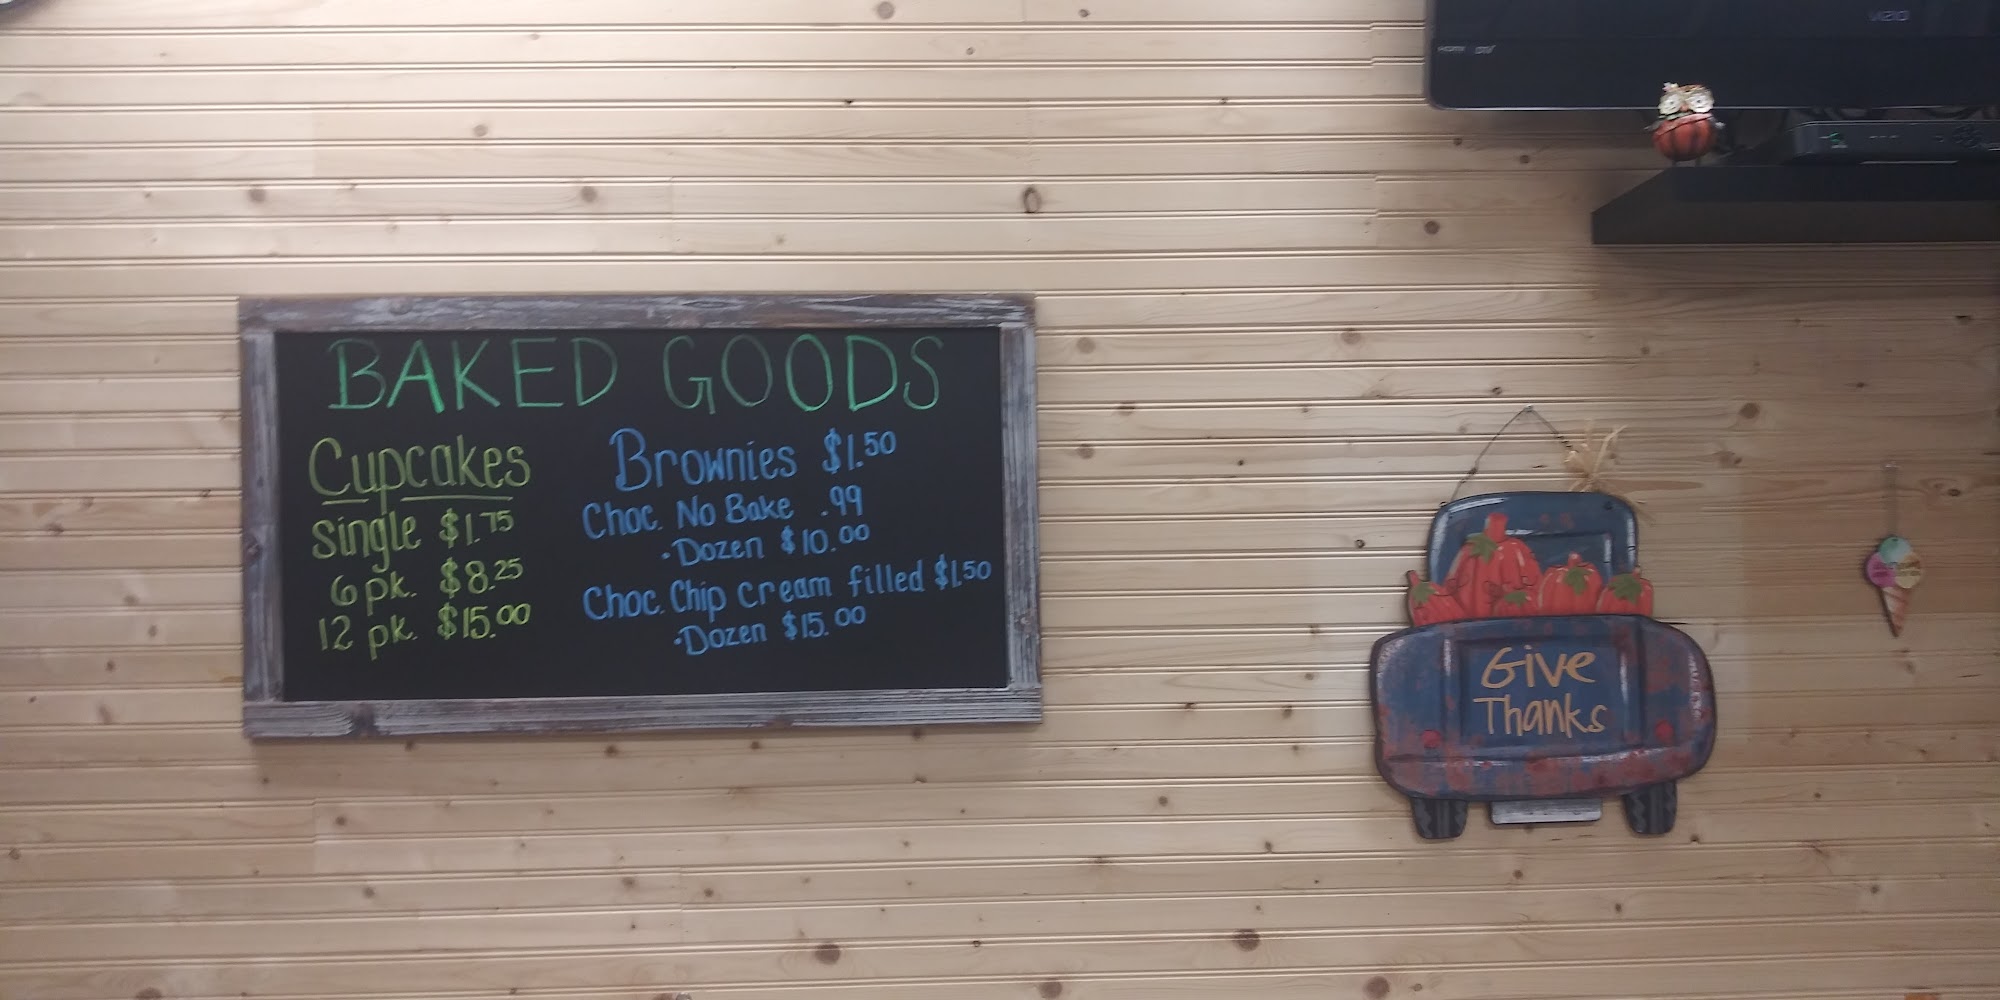 VIZIO
HDMI DTV
BAKED GOODS
Cupcakes
single $1.75
6 pk. $8.25
12 pk. $15.00
Brownies $1.50
Choc. No Bake .99
• Dozen $10.00
Choc. Chip cream filled $1.50
• Dozen $15.00
Give
Thanks